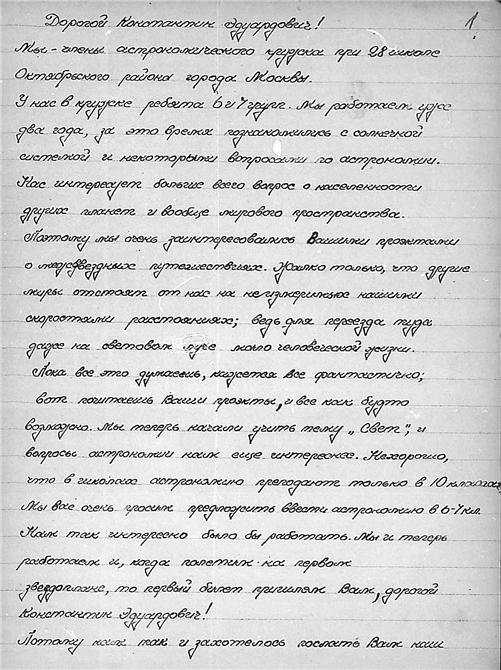 1
Дорогой Константин Эдуардович!
Мы - члены астрономического кружка при 28 школе
Октябрьского района города Москвы.
У нас в кружке ребята 6 и 7 групп. Мы работаем уже
два года, за это время познакомились с солнечной
системой и некоторыми вопросами по астрономии.
Нас интересует больше всего вопрос о населенности
других планет и вообще мирового пространства.
Поэтому мы очень заинтересовались Вашими проэктами
о межзвездных путешествиях. Жалко только, что другие
миры отстоят от нас на неизмеримых нашими
скоростями расстояниях; ведь для переезда туда
даже на световом луче мало человеческой жизни.
Пока все это думаешь, кажется все фантастично;
вот почитаешь Ваши проэкты, и все как будто
возможно. Мы теперь начали учить тему „Свет", и
вопросы астрономии нам еще интереснее. Нехорошо,
что в школах астрономию преподают только в 10 классах
Мы вас очень просим предложить ввести астрономию в 6-7 кл.
Нам так интересно было бы работать. Мы и теперь
работаем и, когда полетим на первом
звездоплане, то первый билет пришлем Вам, дорогой
Константин Эдуардович!
Потому нам так и захотелось послать Вам наш